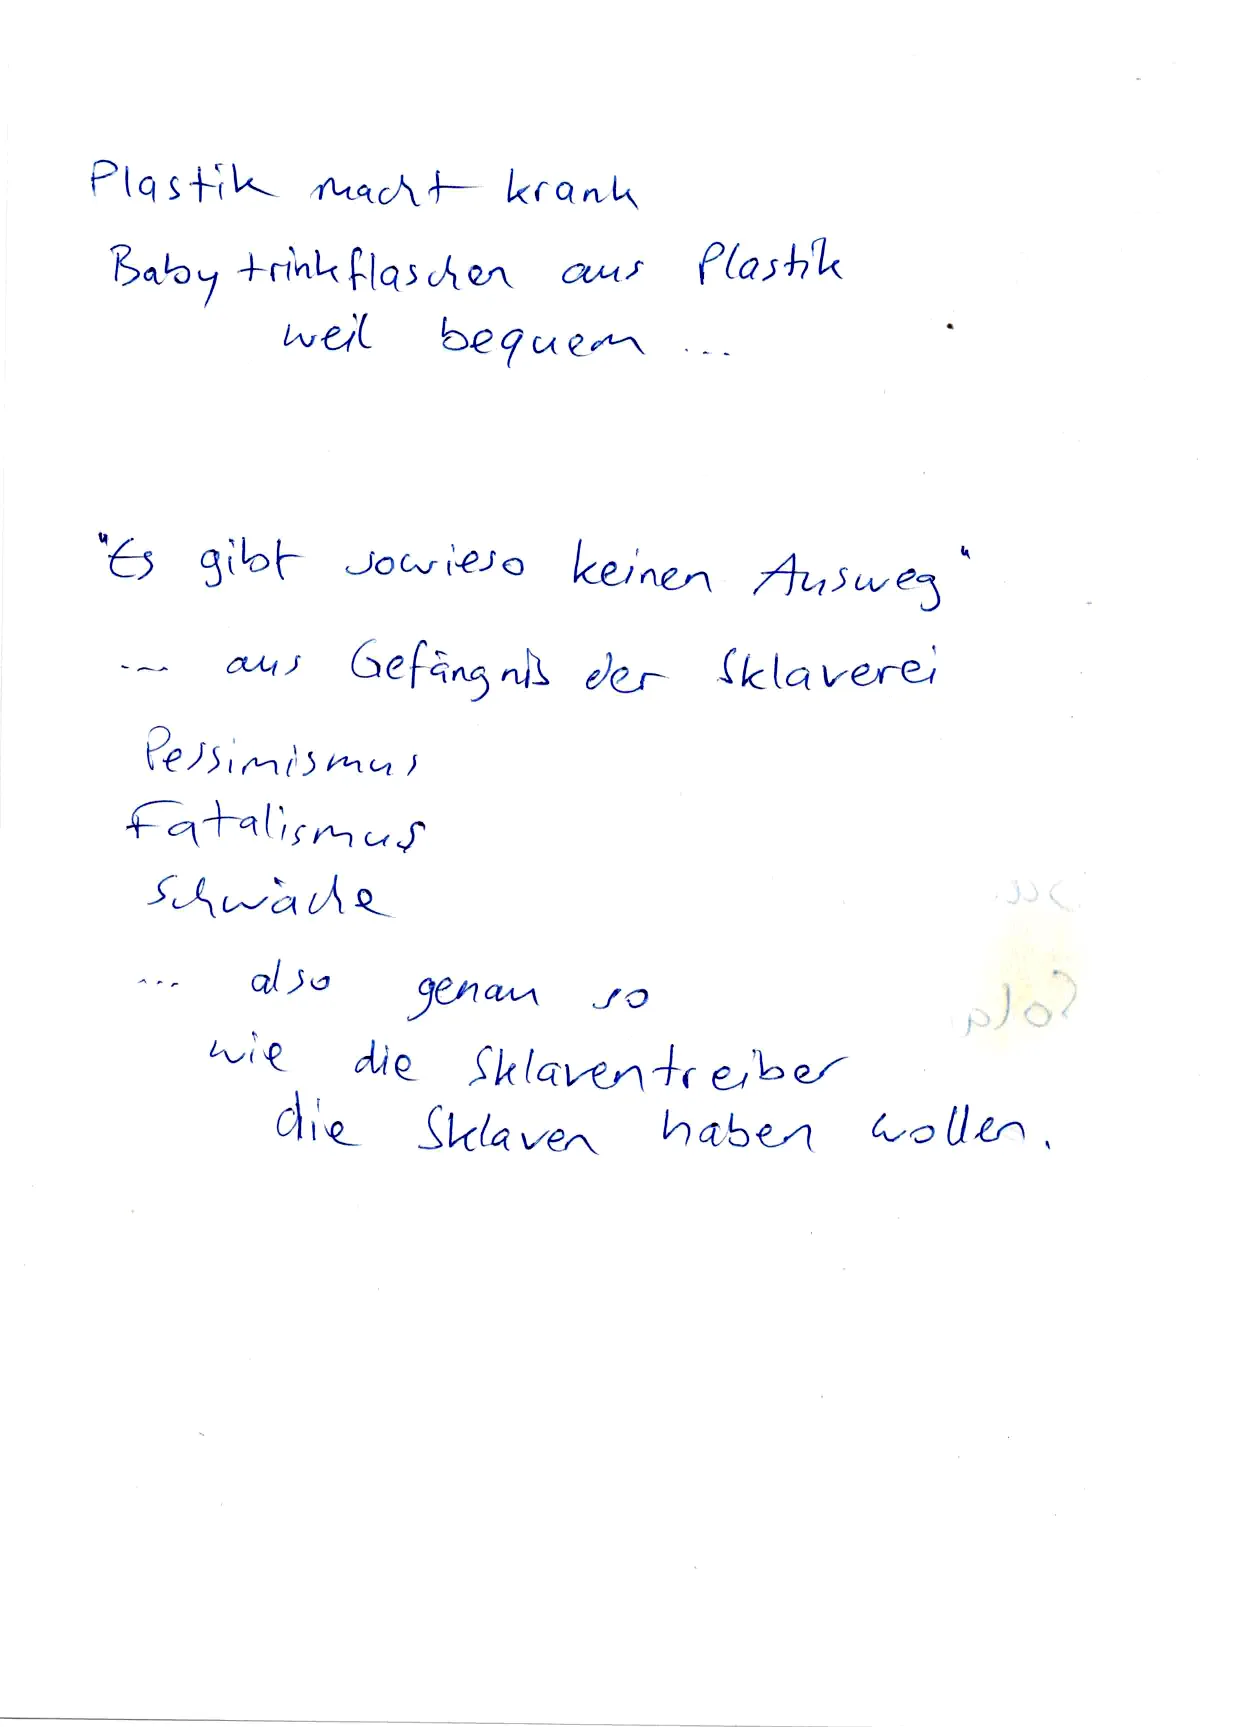 Plastik macht krank
Babytrinkflaschen aus Plastik
weil bequem ...
"Es gibt sowieso keinen Ausweg"
... aus Gefängnis der Sklaverei
Pessimismus
Fatalismus
Schwäche
... also genau so
wie die Sklaventreiber
die Sklaven haben wollen.